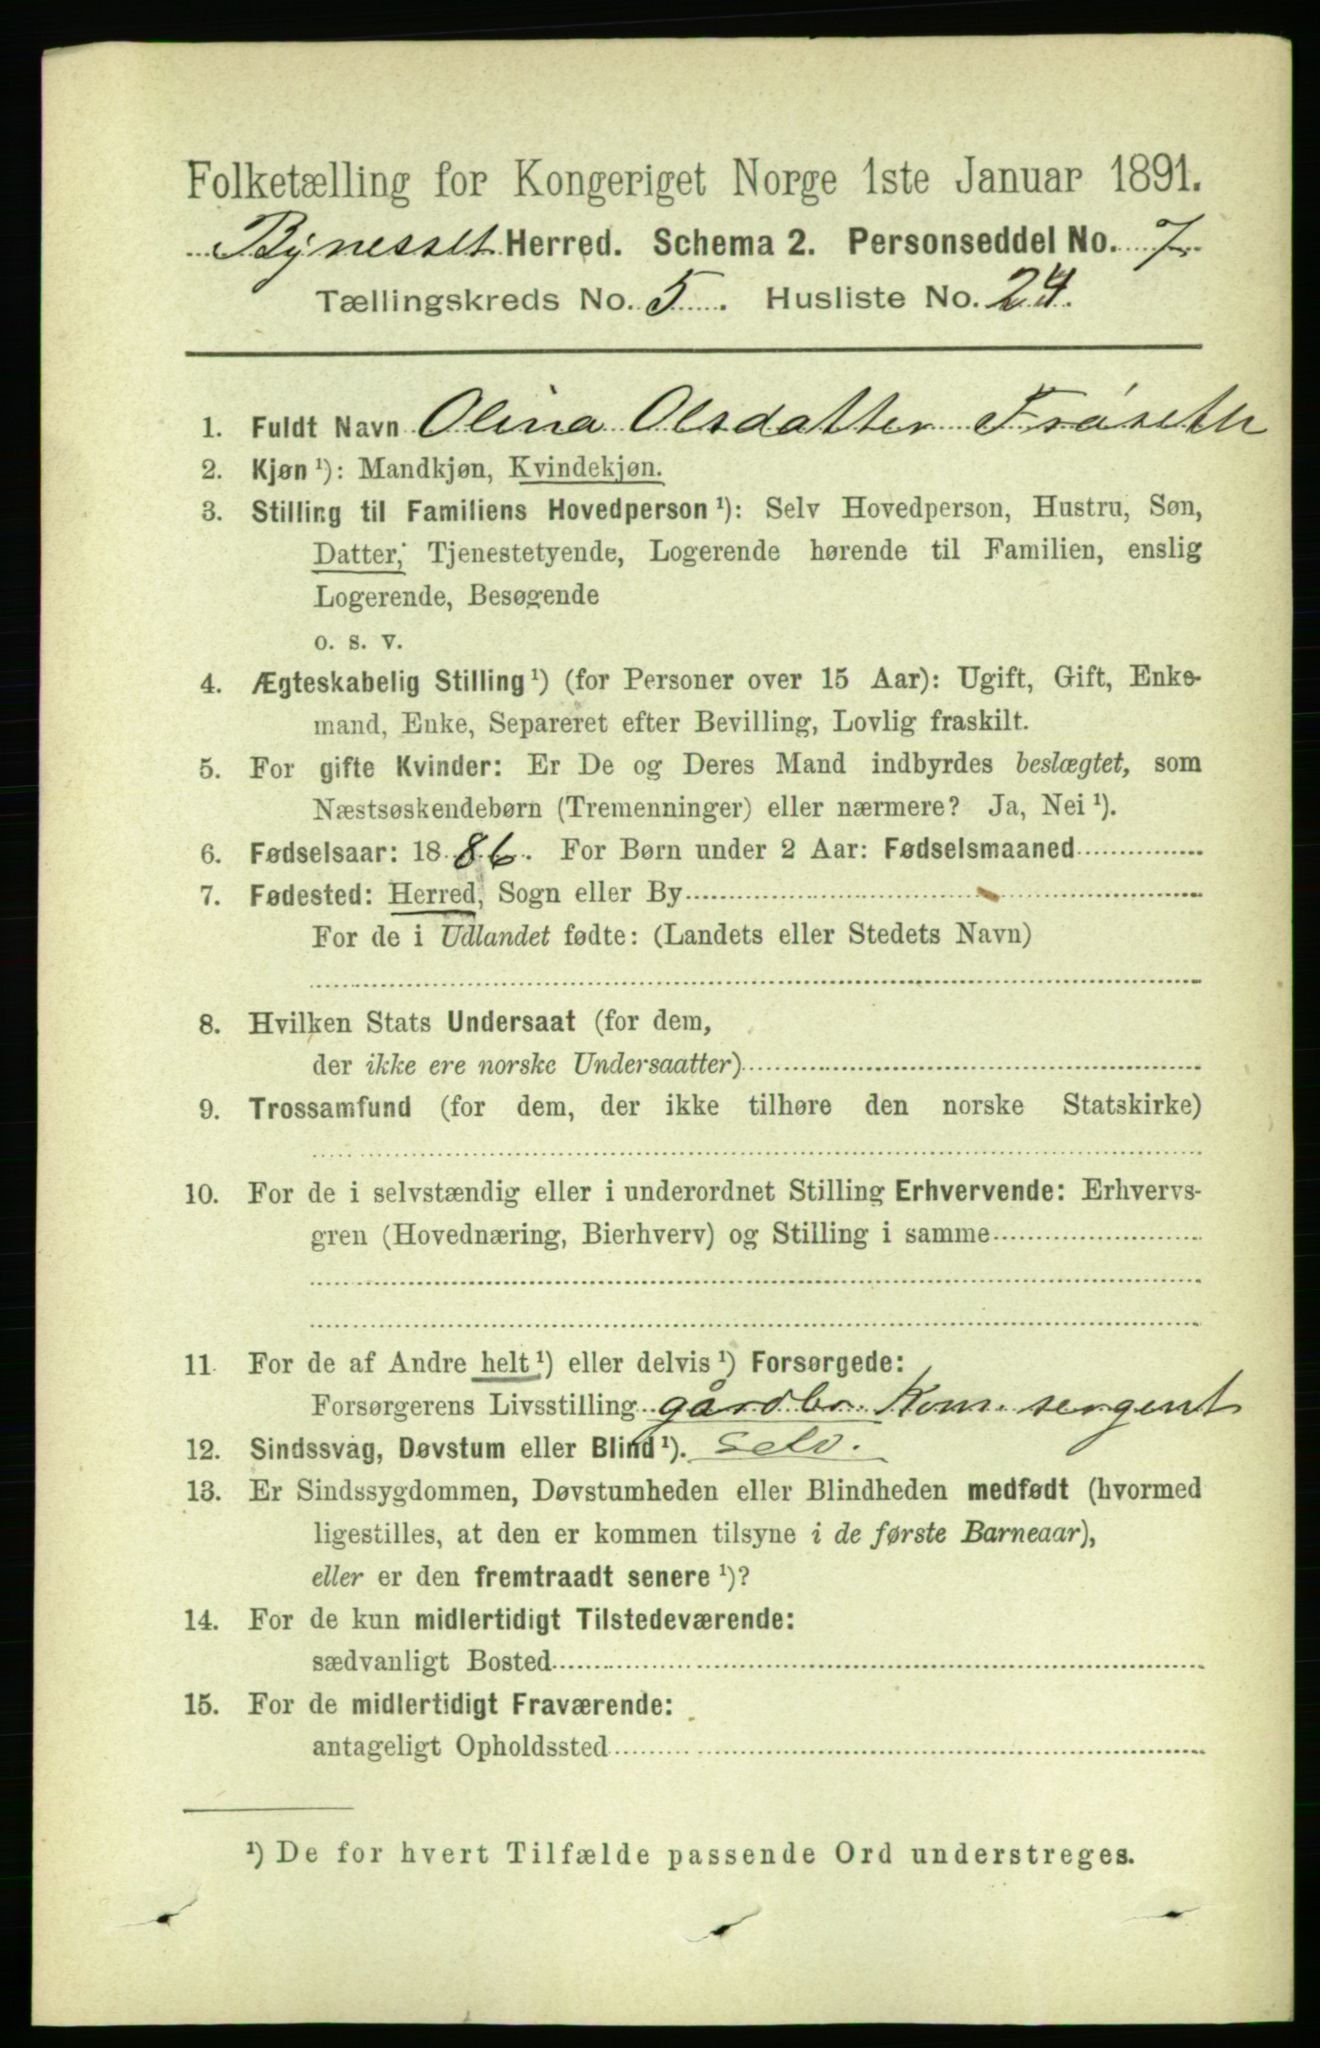 Folketælling for Kongeriget Norge 1ste Januar 1891.
Bynesset Herred. Schema 2. Personseddel No. 7.
Tællingskreds No. 5. Husliste No. 24.
1. Fuldt Navn Olina Olsdatter Fröseth
2. Kjøn ¹): Mandkjøn, Kvindekjøn.
3. Stilling til Familiens Hovedperson ¹): Selv Hovedperson, Hustru, Søn,
Datter, Tjenestetyende, Logerende hørende til Familien, enslig
Logerende, Besøgende
o. s. v.
4. Ægteskabelig Stilling ¹) (for Personer over 15 Aar): Ugift, Gift, Enke-
mand, Enke, Separeret efter Bevilling, Lovlig fraskilt.
5. For gifte Kvinder: Er De og Deres Mand indbyrdes beslægtet, som
Næstsøskendebørn (Tremenninger) eller nærmere? Ja, Nei ¹).
6. Fødselsaar: 1886. For Børn under 2 Aar: Fødselsmaaned
7. Fødested: Herred, Sogn eller By
For de i Udlandet fødte: (Landets eller Stedets Navn)
8. Hvilken Stats Undersaat (for dem,
der ikke ere norske Undersaatter)
9. Trossamfund (for dem, der ikke tilhøre den norske Statskirke)
10. For de i selvstændig eller i underordnet Stilling Erhvervende: Erhvervs-
gren (Hovednæring, Bierhverv) og Stilling i samme
11. For de af Andre helt ¹) eller delvis ¹) Forsørgede:
Forsørgerens Livsstilling gårdbr. Kom. sergent
12. Sindssvag, Døvstum eller Blind ¹). Selv.
13. Er Sindssygdommen, Døvstumheden eller Blindheden medfødt (hvormed
ligestilles, at den er kommen tilsyne i de første Barneaar),
eller er den fremtraadt senere ¹)?
14. For de kun midlertidigt Tilstedeværende:
sædvanligt Bosted
15. For de midlertidigt Fraværende:
antageligt Opholdssted
¹) De for hvert Tilfælde passende Ord understreges.